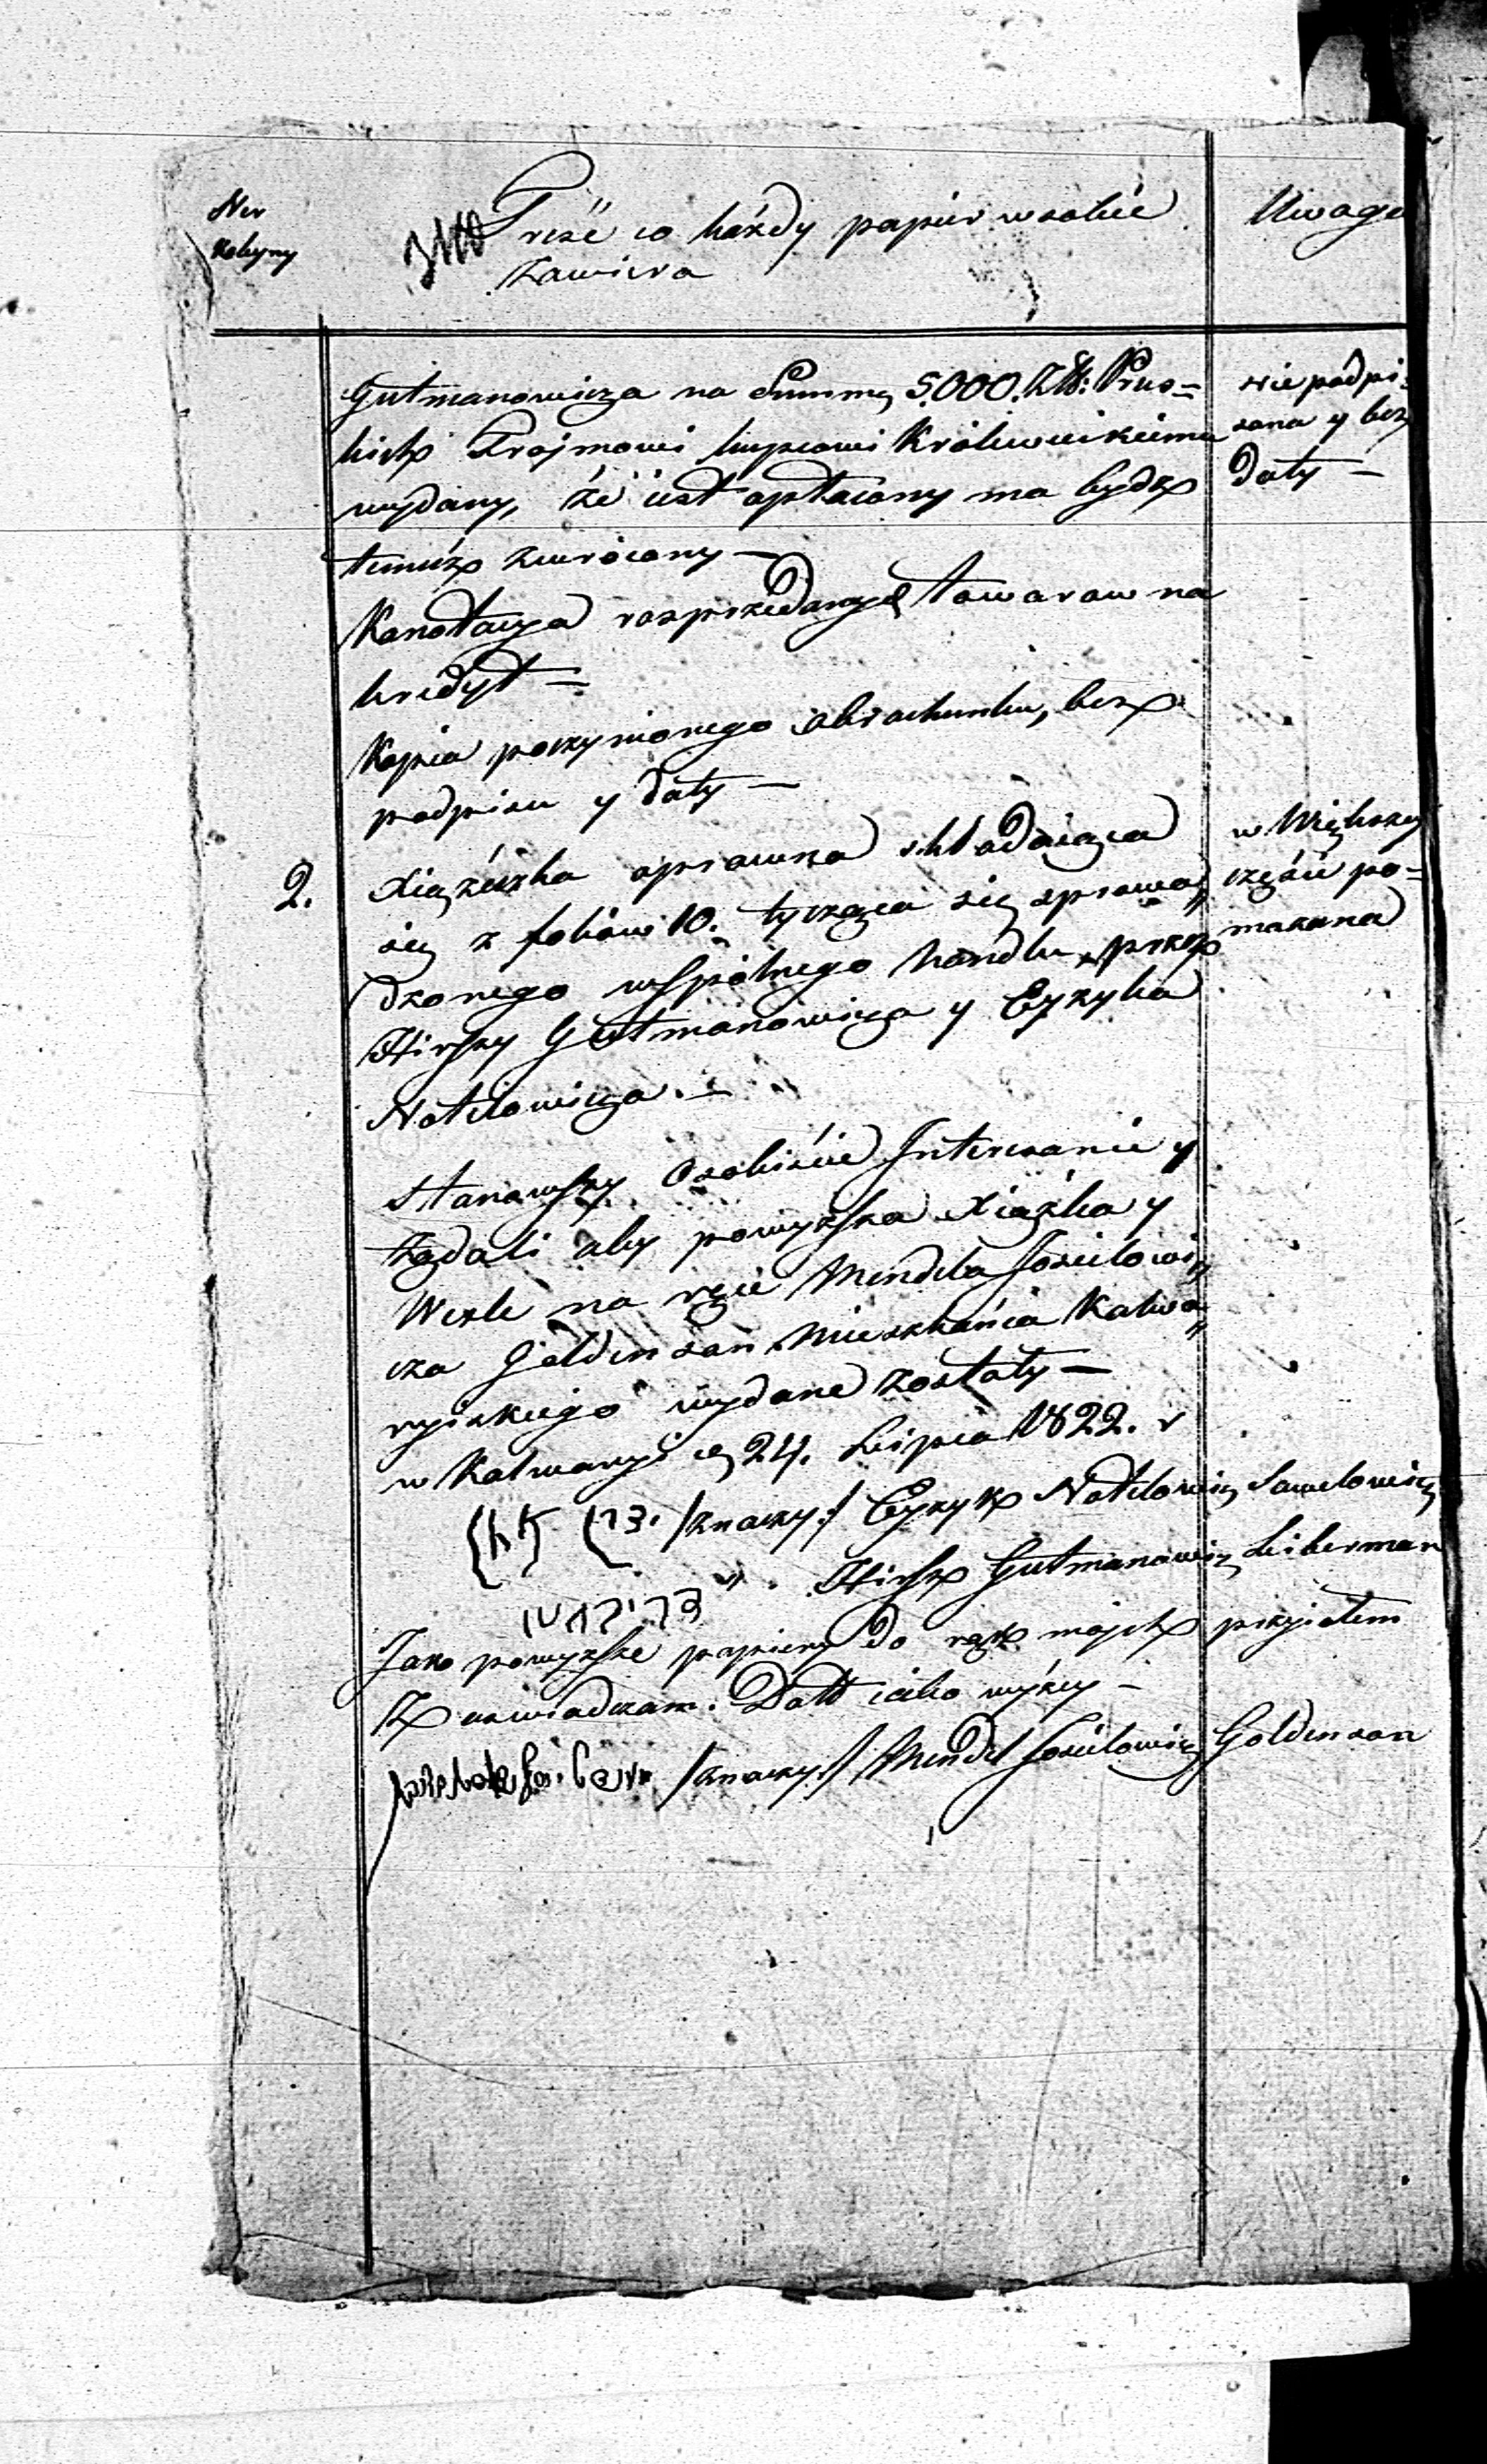 Ner
Kolumny
Treść co każdy papier w sobie
zawiera
Uwaga
Gutmanowicza na Summę 5.000. Złł: Prus=
kich Frajmowi kupcowi Królewieckiemu
wydany, że iest opłacony ma bydz
temuż zwrócony —
nie podpi=
sana y bez
daty —
Kanotacya rosprzedanych towarow na
kredyt —
Kopia poczynionego obrachunku, bez
podpisu y daty —
2. Xiążeczka oprawna składaiąca
się z foliów 10. tycząca się sprowa„
dzonego wspólnego handlu przez
Hirszy Gutmanowicza y Eyzyka
Notelowicza. —
w Większey
części po=
mazana
Stanąwszy Osobiście Interesanci y
Żądali aby powyższa Xiążka y
Wexle na ręce Mendla Joselowi„
cza Goldenson Mieszkańca Kalwa„
ryiskiego wydane zostały —
w Kalwaryi d 24. Lipca 1822. r
/znaczy:/ Eyzyk Notelowicz Sawelowicz
„ . Hirsz Gutmanowicz Liberman
Jako powyższe papiery do rąk moich przyiąłem
Zaświadczam. Datt iako wyżey —
/znaczy:/ Mendel Joselowicz Goldenson